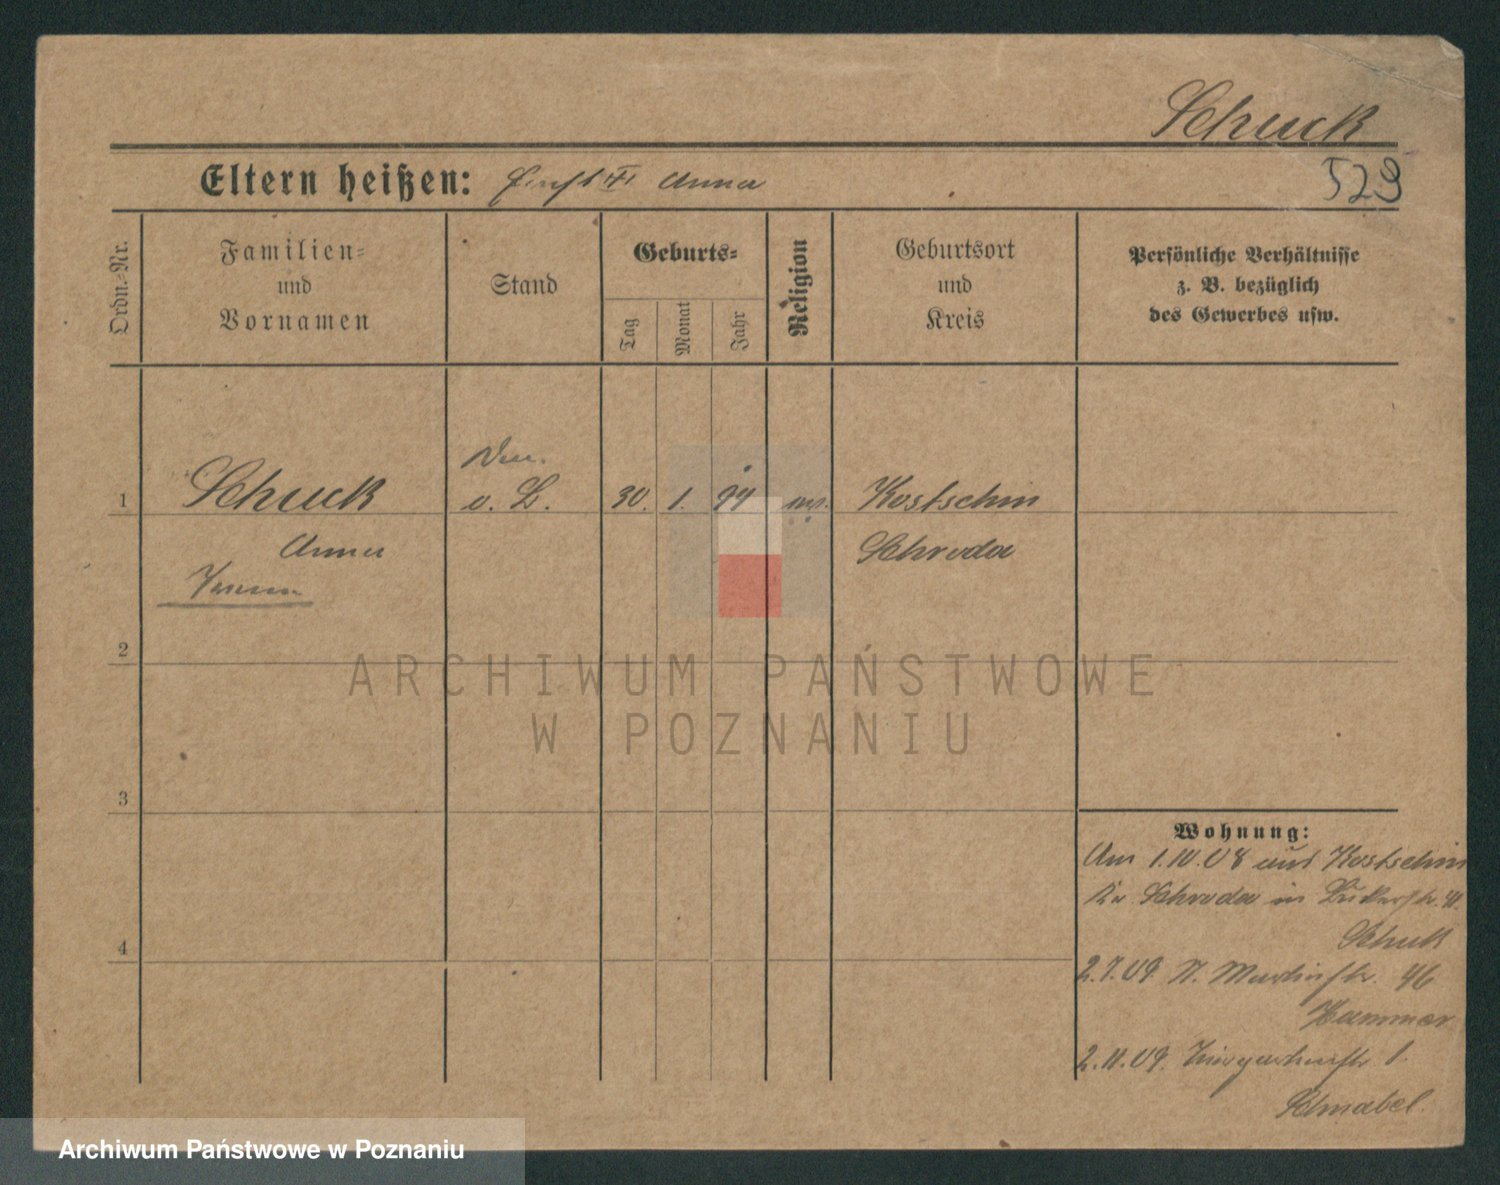 Schuck
Eltern heißen: Anna
529
Ordn.-Nr.
Familien-
und
Vornamen
Stand
Geburts-
Tag
Monat
Jahr
Religion
Geburtsort
und
Kreis
Persönliche Verhältnisse
z. B. bezüglich
des Gewerbes usw.
1
Schuck
o. B.
30. 1. 94
Kostschin
Anna
Schroda
2
3
4
Wohnung:
Am 1.10.08 aus Kostschin
Kr. Schroda in
Schuck
2.7.09. St. Martinstr. 46
Hammer
2.11.09. Tiergartenstr. 1.
Schnabel.
ARCHIWUM PAŃSTWOWE
W POZNANIU
Archiwum Państwowe w Poznaniu